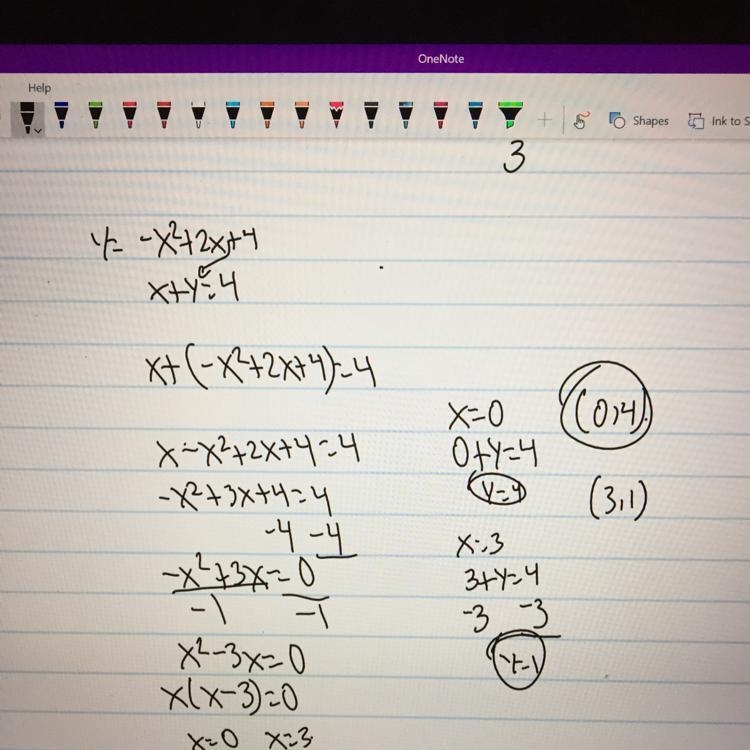 OneNote
Help
Shapes
Ink to S
3
y= -x²+2x+4
x+y=4
x+(-x²+2x+4)=4
x-x²+2x+4=4
-x²+3x+4=4
-4 -4
-x²+3x=0
-1 -1
x²-3x=0
x(x-3)=0
x=0 x=3
x=0
0+y=4
y=4
x=3
3+y=4
-3 -3
y=1
(0,4)
(3,1)